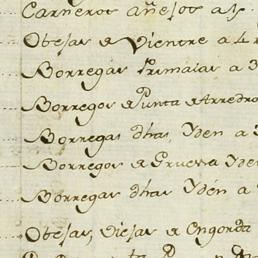 Carneros añejos a 5.
Obejas de Vientre a 4 r
Borregas Primalas a 3
Borregos de Punta de Arredro
Borregas dhas, Yden a
Borregos de Pruessa Yde
Borregas dhas Ydén a
Obejas, Viejas de Engorda